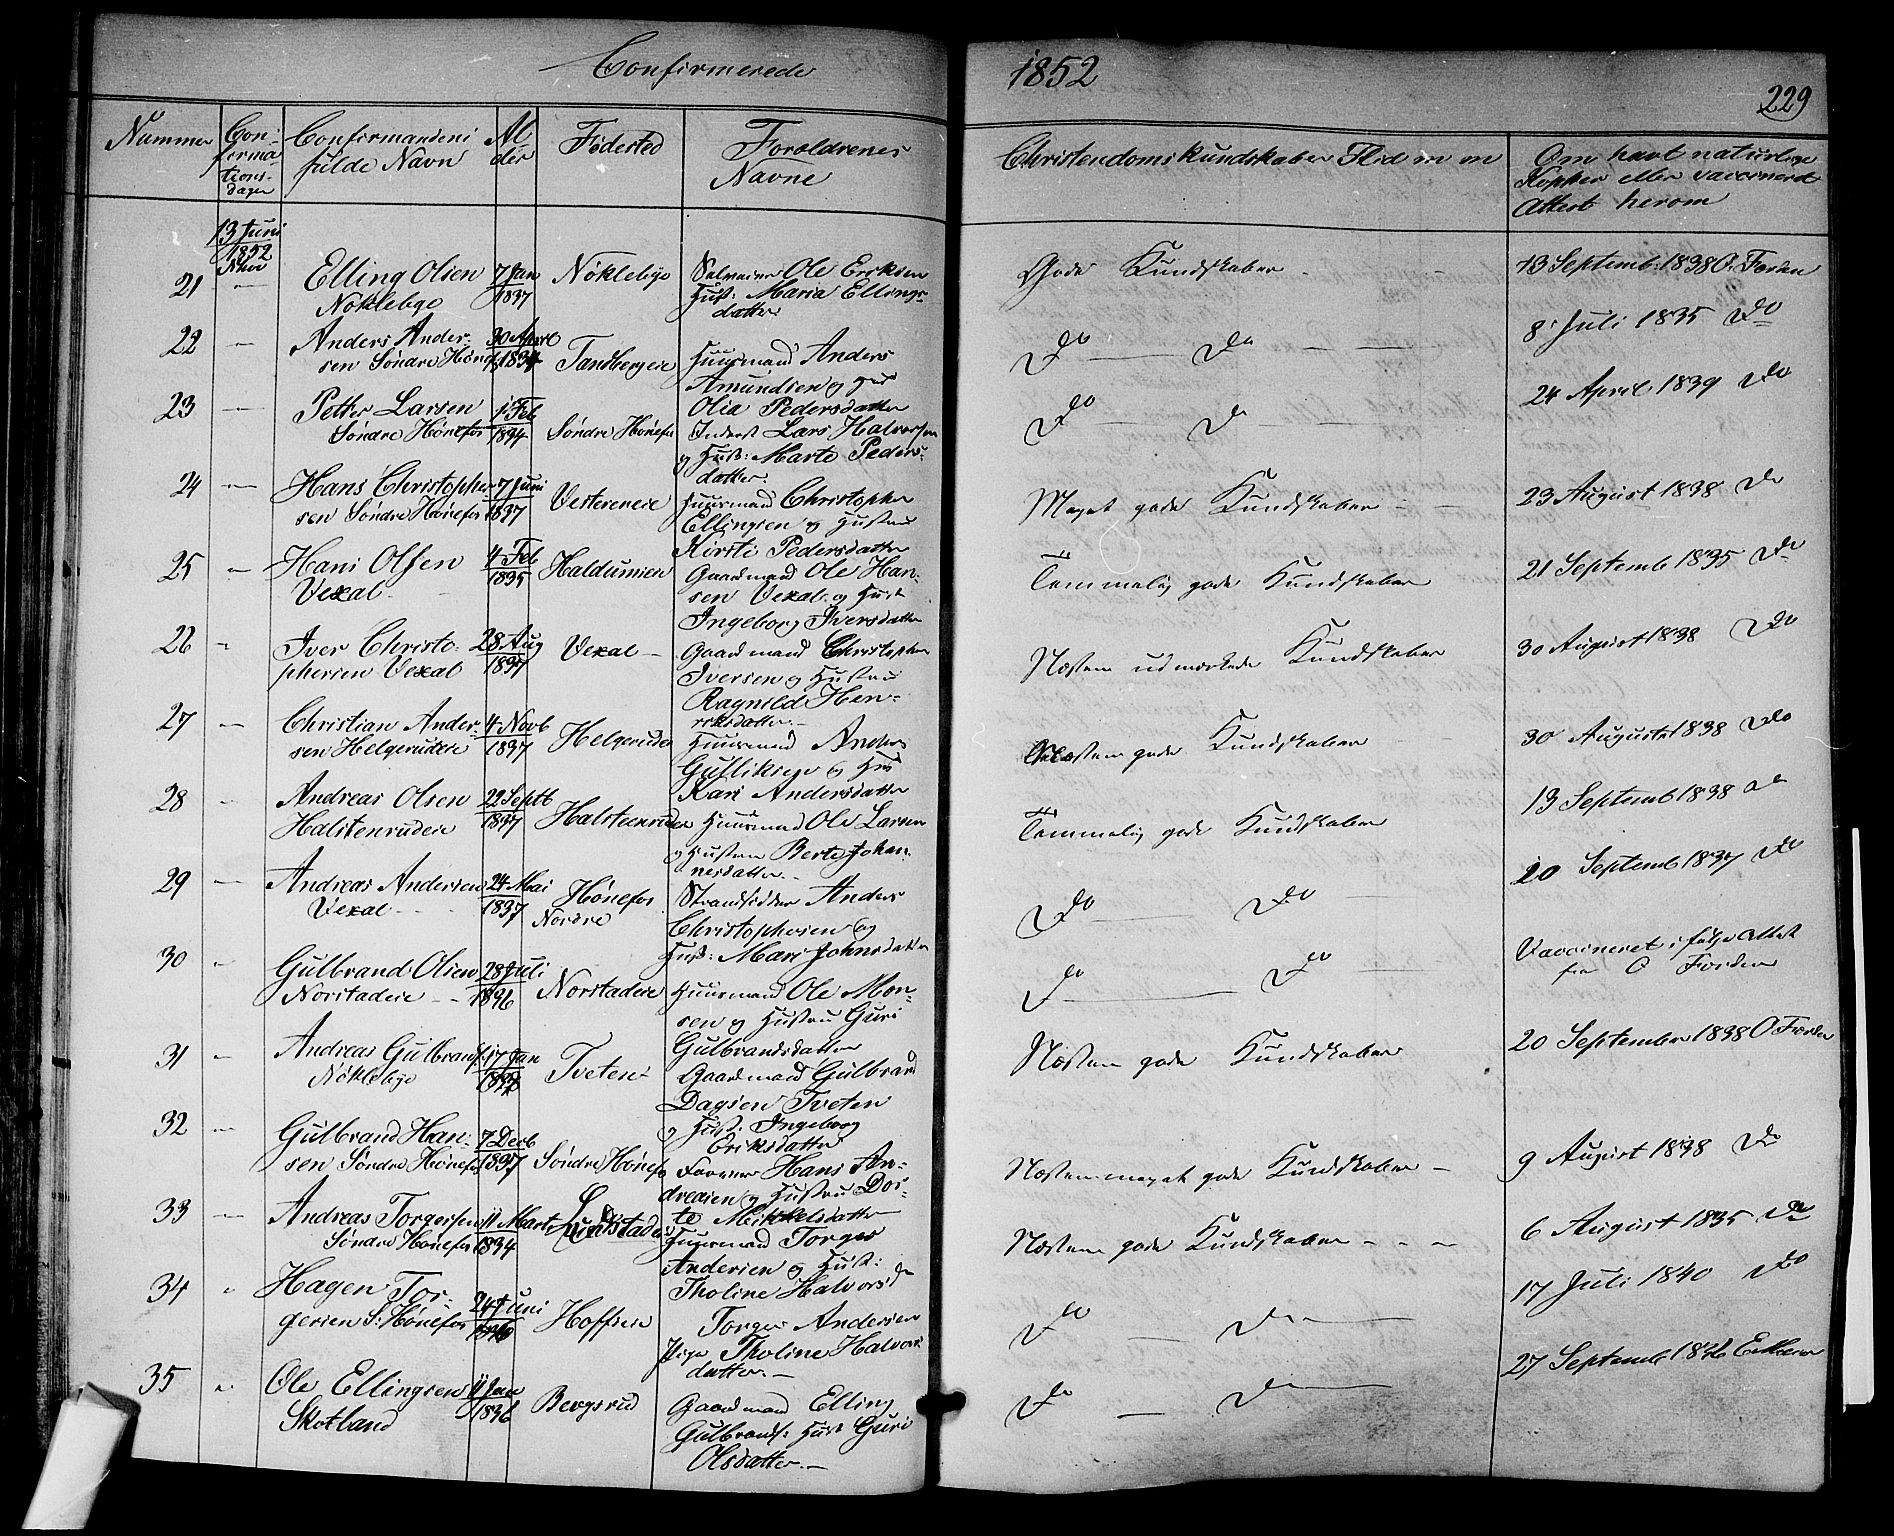 Confirmerede
1852
229
Nummer
Con-
firma-
tions-
dagen
Confirmandens
fulde Navn
Al-
der
Födested
Foroldrenes
Navne
Christendomskundskaber Flid m m
Om havt naturlige
Kopper eller vaccinered
Attest herom
13 Juni
1852
21
Elling Olsen
Noklebye
7 Jan
1837
Nöklebye
Ole Ericsen
Hust: Maria Ellings-
datter
Gode Kundskaber
13 Septemb: 1838 O. Forden
22
Anders Ander-
sen Söndre Hönefos
30 April
1834
Tandbergeie
Huusmand Anders
Amundsen og Hus
Olia Pedersdatter
Do Do
8 Juli 1835 Do
23
Petter Larsen
Söndre Hönefos
1 Feb
1834
Söndre Hönefos
Inderst Lars Halvorsen
og Hust: Marte Peders-
datter
Do Do
24 April 1839 Do
24
Hans Christopher-
sen Söndre Hönefos
7 Juni
1837
Vesterneie
Huusmand Christopher
Ellingsen og Hustru
Kirsti Pedersdatter
Meget gode Kundskaber
23 August 1838 Do
25
Hans Olsen
Vexal
4 Feb
1835
Haldumsen
Gaardmand Ole Han-
sen Vexal og Hust
Ingeborg Iversdatter
Temmelig gode Kundskaber
21 Septemb 1835 Do
26
Iver Christo-
phersen Vexal
28 Aug
1837
Vexal
Gaardmand Christopher
Iversen og Hustru
Ragnild Hen-
riksdatter
Næsten udmærkede Kundskaber
30 August 1838 Do
27
Christian Ander-
sen Helgerudeie
4 Novb
1837
Helgerudeie
Huusmand Anders
Gulliksen og Hus
Kari Andersdatter
Næsten gode Kundskaber
30 August 1838 Do
28
Andreas Olsen
Halstenrudeie
22 Septb
1837
Halsteenrudeie
Huusmand Ole Larsen
og Hustru Berte Johan-
nesdatter
Temmelig gode Kundskaber
13 Septemb 1838 do
29
Andreas Andersen
Vexal
24 Mai
1837
Hönefos
Nordre
Strandsidder Anders
Christophersen og
Hust: Mari Johnsdatter
Do Do
20 Septemb 1837 Do
30
Gulbrand Olsen
Norstadeie
28 Juli
1836
Norstadeie
Huusmand Ole Mon-
sen og Hustru Guri
Gulbrandsdatter
Do Do
Vaccineret ifölge Attest
fra O Forden
31
Andreas Gulbrands
Nöklebye
17 Jan
Tveten
Gaardmand Gulbrand
Dagsen Tveten
og Hust: Ingeborg
Eriksdatter
Næsten gode Kundskaber
20 September 1838 O Forden
32
Gulbrand Han-
sen Söndre Hönefos
7 Decb
1837
Söndre Hönefos
Farver Hans An-
dreasen og Hustru Dor-
te Mikkelsdatter
Næsten meget gode Kundskaber
9 August 1838 Do
33
Andreas Torgersen
Söndre Hönefos
11 Marts
1834
Lundstadeie
Huusmand Torger
Andersen og Hust:
Tholine Halvorsd
Næsten gode Kundskaber
6 August 1835 Do
34
Hagen Tor-
gersen S: Hönefos
24 Juni
Hoffseie
Torger Andersen
Pige Tholine Halvors
datter
Do Do
17 Juli 1840 Do
35
Ole Ellingsen
Skotland
11 Jan
1836
Bergsrud
Gaardmand Elling
Gulbrands: Hust Guri
Olsdatter
Do Do
27 Septemb